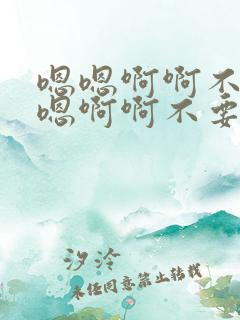 嗯嗯啊啊不
嗯啊啊不要
汐泠
未经同意禁止转载